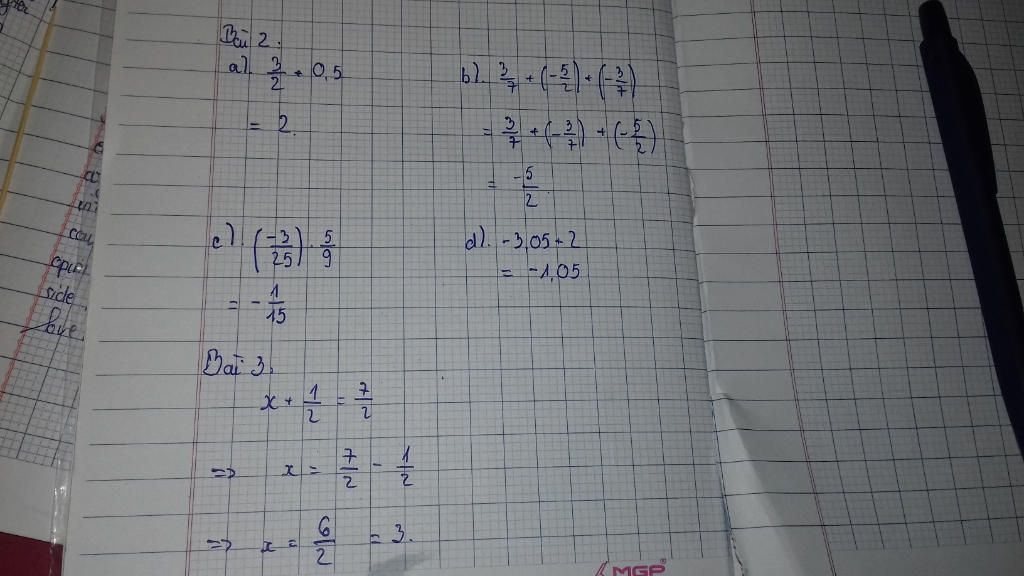 Bài 2.
a). 3/2 + 0,5
= 2.
b). 3/7 + (-5/2) + (-3/7)
= 3/7 + (-3/7) + (-5/2)
= -5/2.
c). (-3/25) . 5/9
= - 1/15
d). -3,05+2
= -1,05
Bài 3.
x + 1/2 = 7/2
=> x = 7/2 - 1/2
=> x = 6/2 = 3.
MGP